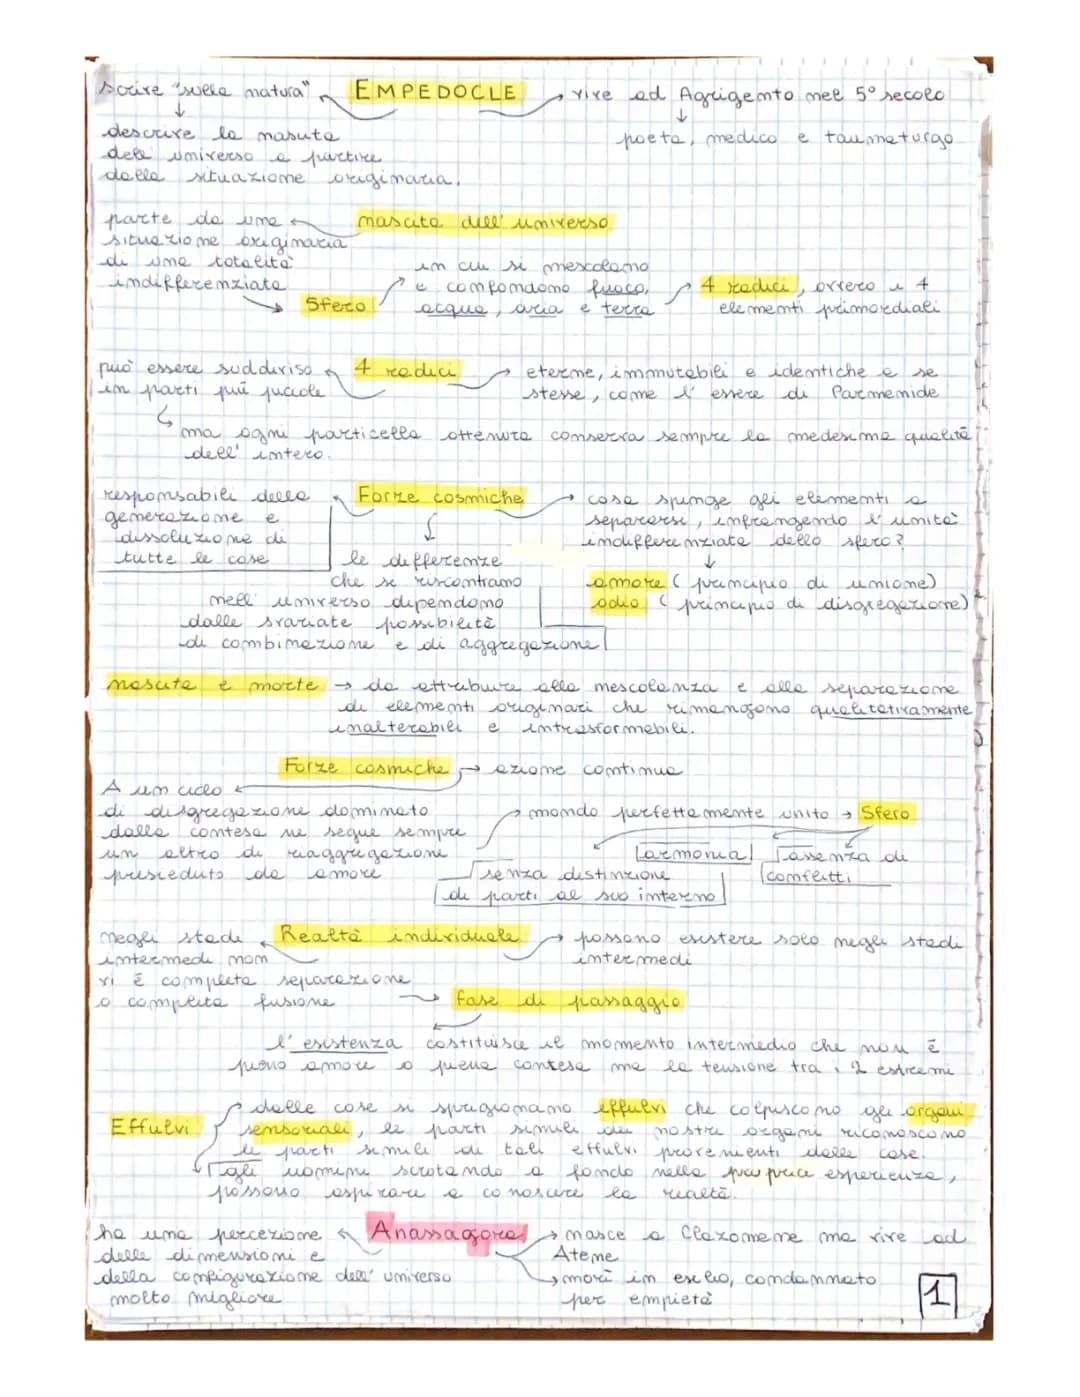 scrive "sulla natura" EMPEDOCLE vive ad Agrigento nel 5° secolo
descrive la nascita
poeta, medico e taumaturgo
dell' universo a partire
dalla situazione originaria.
parte da una nascita dell' universo
situazione originaria
di una totalità
indifferenziata
in cui si mescolano
e confondono fuoco,
acqua, aria e terra
4 radici, ovvero i 4
elementi primordiali
Sfero
può essere suddiviso 4 radici eterne, immutabili e identiche a se
in parti più piccole stesse, come l' essere di Parmenide
ma ogni particella ottenuta conserva sempre la medesima qualità
dell' intero.
responsabili della Forze cosmiche cosa spinge gli elementi a
generazione e separarsi, infrangendo l' unità
dissoluzione di indifferenziata dello sfero?
tutte le cose le differenze
che si riscontrano amore (principio di unione)
nell' universo dipendono odio (principio di disgregazione)
dalle svariate possibilità
di combinazione e di aggregazione
nascita e morte → da attribuire alla mescolanza e alla separazione
di elementi originari che rimangono qualitativamente
inalterabili e intrasformabili.
Forze cosmiche azione continua
A un ciclo
di disgregazione dominato mondo perfettamente unito → Sfero
dalla contesa ne segue sempre
un altro di riaggregazione armonia assenza di
presieduto da amore senza distinzione conflitti
di parti al suo interno
negli stadi Realtà individuale possono esistere solo negli stadi
intermedi non intermedi
vi è completa separazione
o completa fusione fase di passaggio
l' esistenza costituisce il momento intermedio che non è
pieno amore o piena contesa ma la tensione tra i 2 estremi
dalle cose si sprigionano effulvi che colpiscono gli organi
Effulvi sensoriali, le parti simili dei nostri organi riconoscono
le parti simili di tali effulvi provenienti dalle cose.
gli uomini scrutando a fondo nella propria esperienza,
possono aspirare a conoscere la realtà.
ha una percezione Anassagora nasce a Clazomene ma vive ad
delle dimensioni e Atene
della configurazione dell' universo morì in esilio, condannato
molto migliore per empietà
1